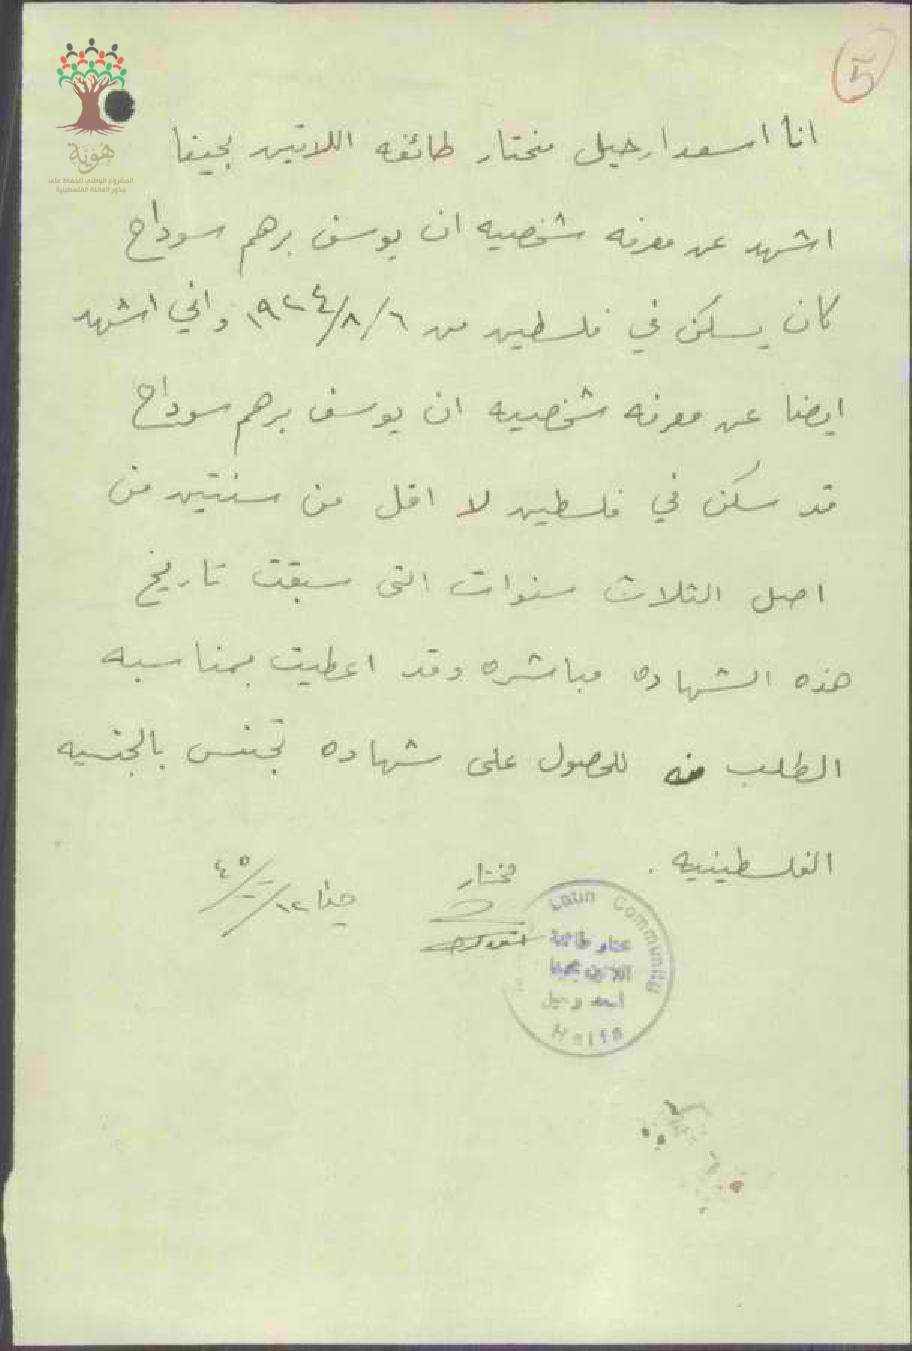 5
هوية
المشروع الوطني للحفاظ على
جذور العائلة الفلسطينية
انا اسعد ارحيل مختار طائفه اللاتين بحيفا
اشهد عن معرفه شخصيه ان يوسف برهم سوداح
كان يسكن في فلسطين من ٦/٨/١٩٢٤ واني اشهد
ايضا عن معرفه شخصيه ان يوسف برهم سوداح
قد سكن في فلسطين لا اقل من سنتين من
اصل الثلاث سنوات التى سبقت تاريخ
هذه الشهاده مباشره وقد اعطيت بمناسبه
الطلب منه للحصول على شهاده تجنس بالجنسيه
الفلسطينيه .
مختار
حيفا
Latin Community
مختار طائفة
اللاتين بحيفا
اسعد رحيل
Haifa